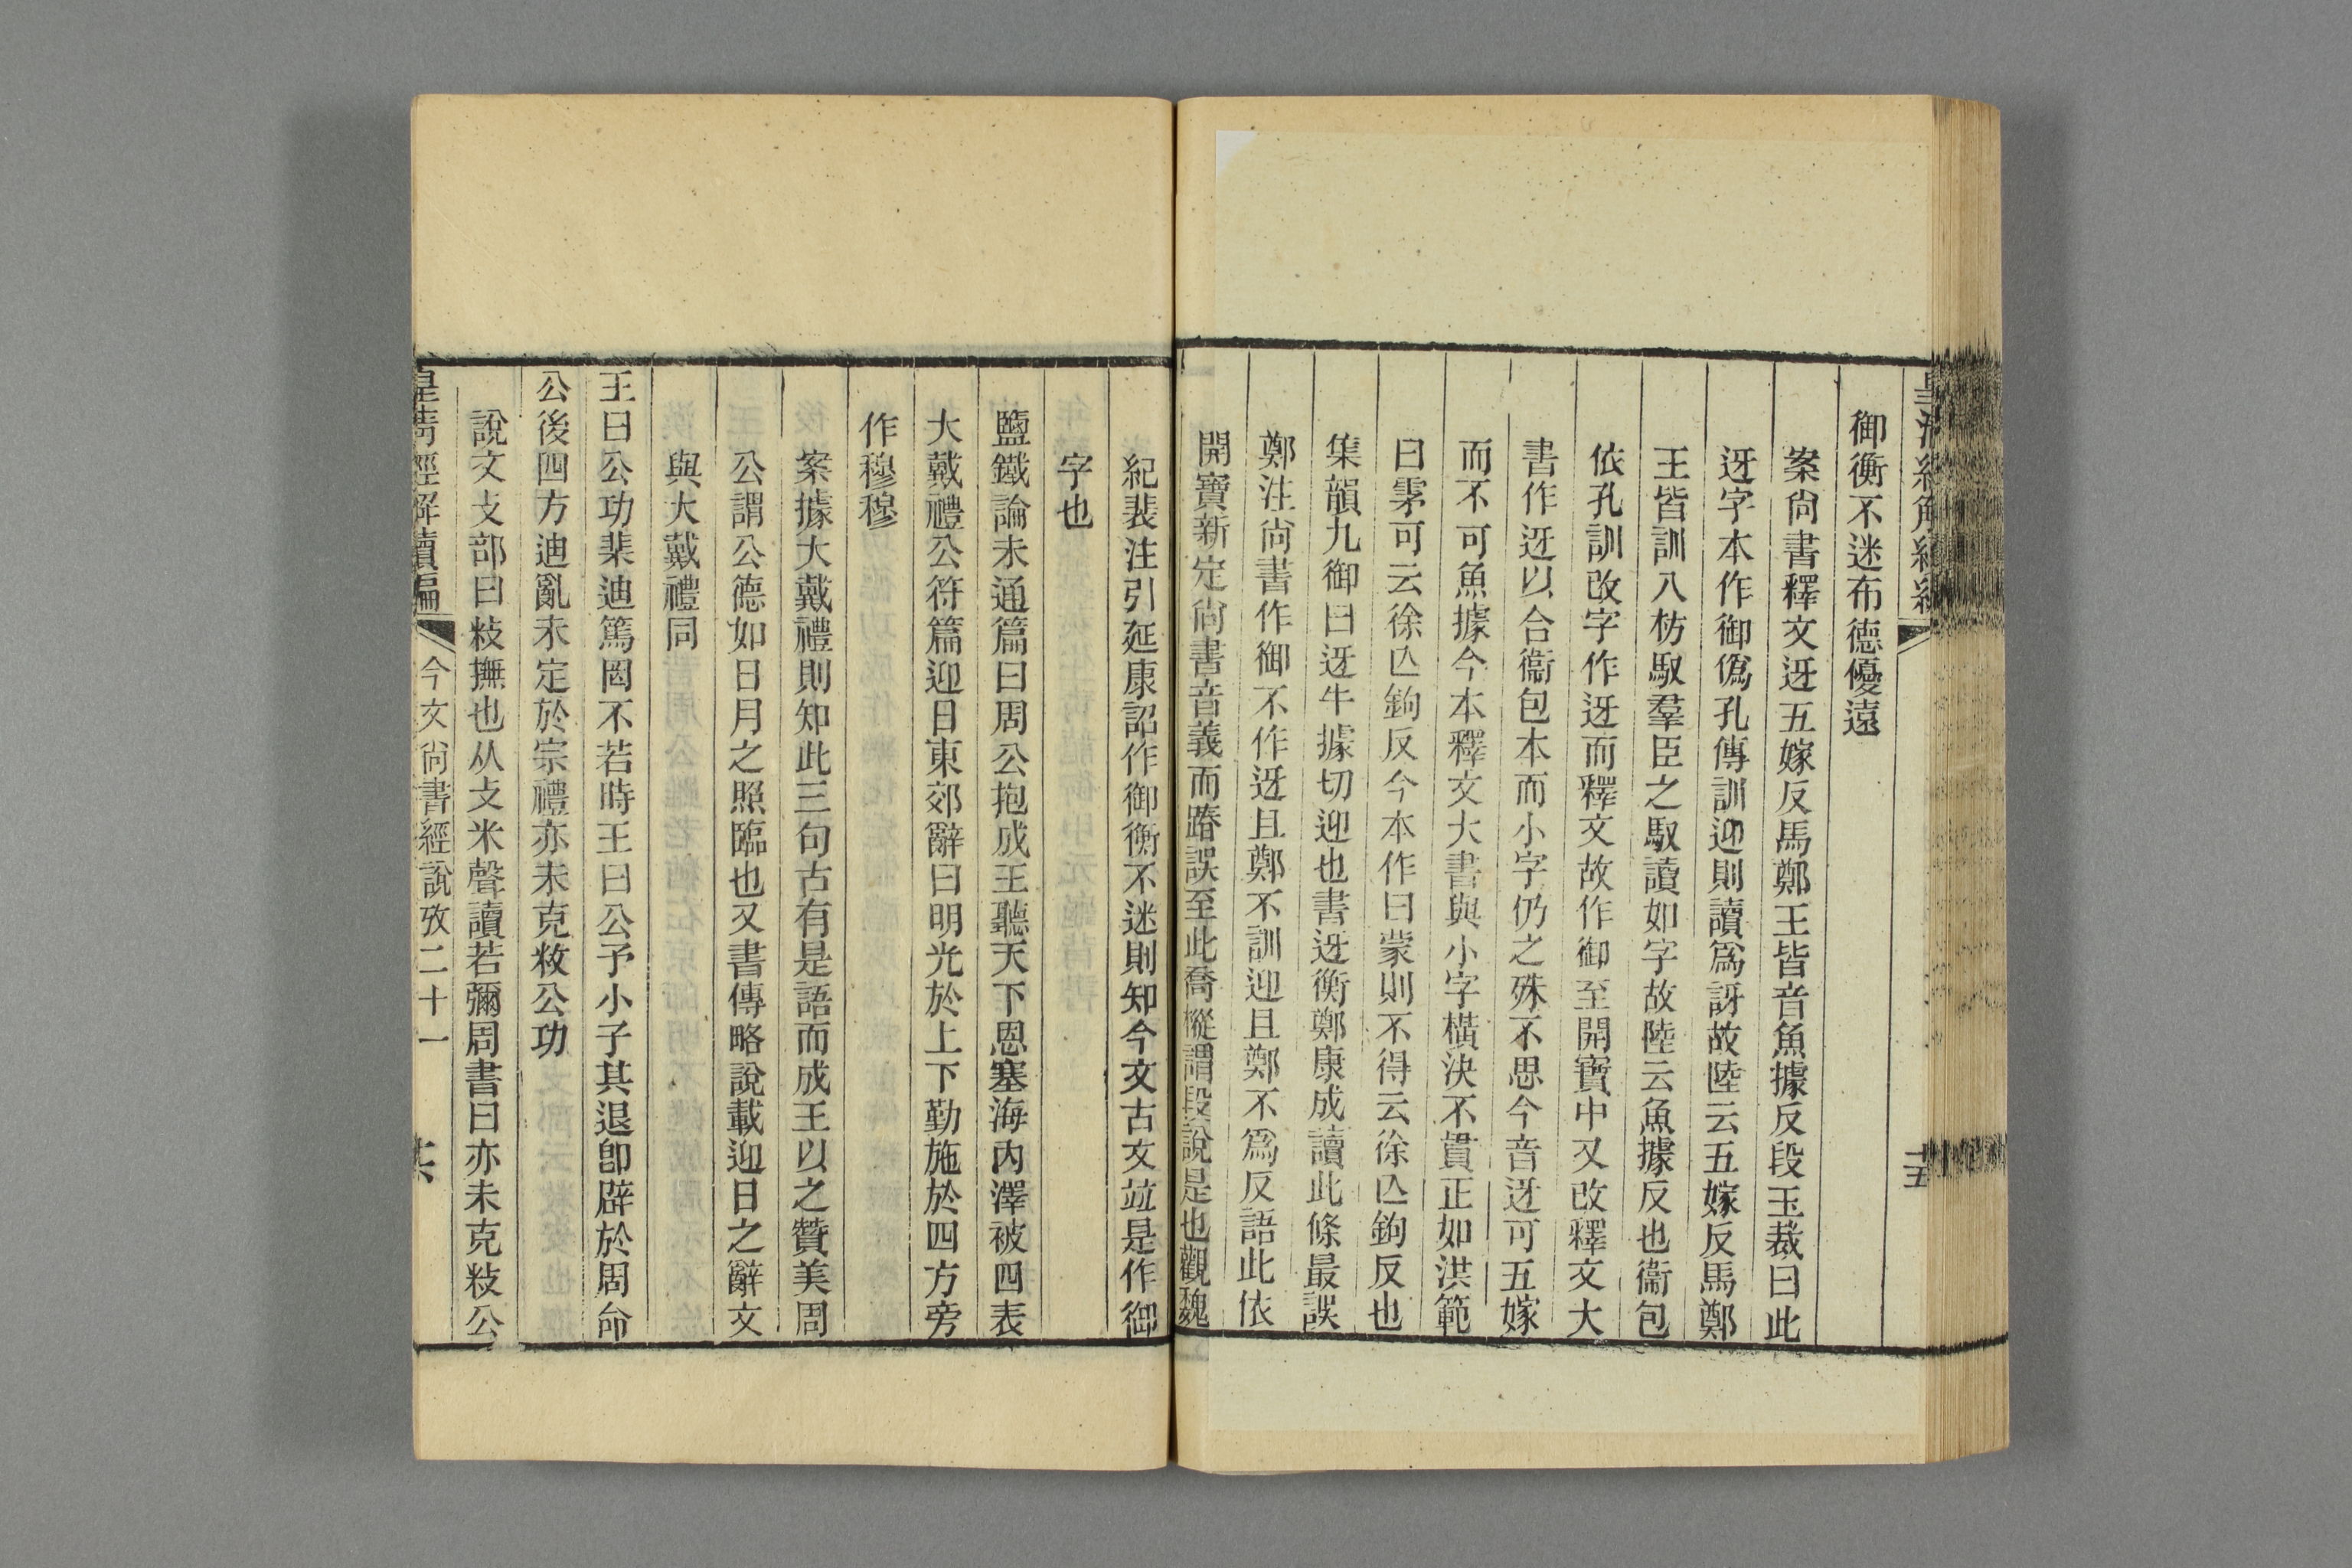 御衡不迷布德優遠
案尙書釋文迓五嫁反馬鄭王皆音魚據反段玉裁曰此
迓字本作御僞孔傳訓迎則讀爲訝故陸云五嫁反馬鄭
王皆訓八枋馭羣臣之馭讀如字故陸云魚據反也衞包
依孔訓改字作迓而釋文故作御至開寶中又改釋文大
書作迓以合衞包本而小字仍之殊不思今音迓可五嫁
而不可魚據今本釋文大書與小字橫決不貫正如洪範
曰雺可云徐亾鉤反今本作曰蒙則不得云徐亾鉤反也
集韻九御曰迓牛據切迎也書迓衡鄭康成讀此條最誤
鄭注尙書作御不作迓且鄭不訓迎且鄭不爲反語此依
開寶新定尙書音義而踳誤至此喬樅謂段說是也觀魏
紀裴注引延康詔作御衡不迷則知今文古文竝是作御
字也
鹽鐵論未通篇曰周公抱成王聽天下恩塞海內澤被四表
大戴禮公符篇迎日東郊辭曰明光於上下勤施於四方旁
作穆穆
案據大戴禮則知此三句古有是語而成王以之贊美周
公謂公德如日月之照臨也又書傳略說載迎日之辭文
與大戴禮同
王曰公功棐迪篤罔不若時王曰公予小子其退卽辟於周命
公後四方迪亂未定於宗禮亦未克敉公功
說文攴部曰敉撫也从攴米聲讀若彌周書曰亦未克敉公
皇淸經解續編
今文尙書經說攷二十一